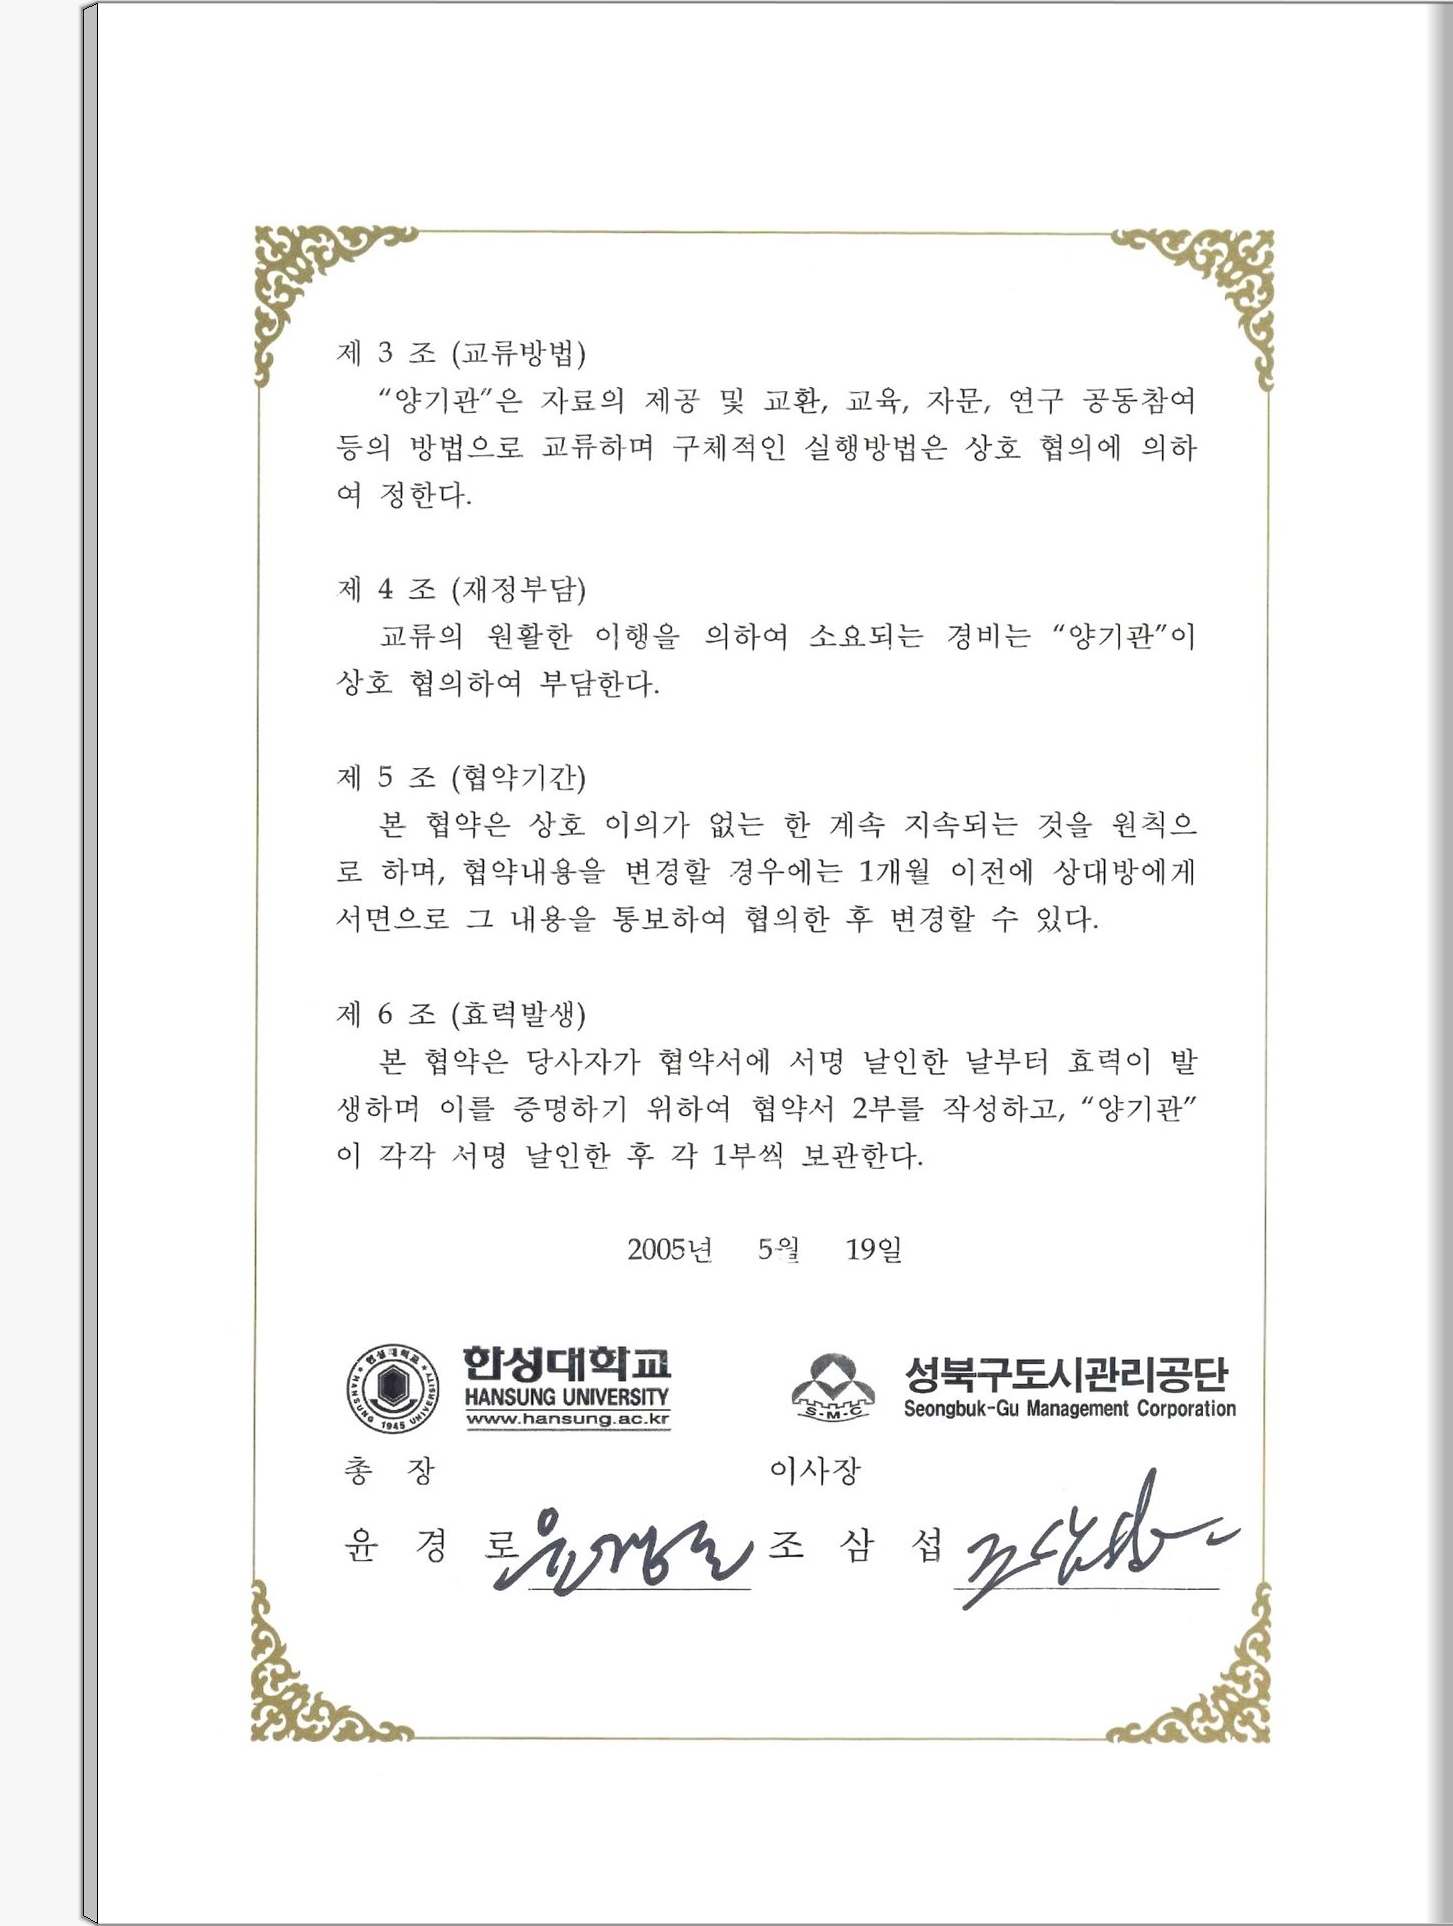 제 3 조 (교류방법)
“양기관”은 자료의 제공 및 교환, 교육, 자문, 연구 공동참여
등의 방법으로 교류하며 구체적인 실행방법은 상호 협의에 의하
여 정한다.
제 4 조 (재정부담)
교류의 원활한 이행을 의하여 소요되는 경비는 “양기관”이
상호 협의하여 부담한다.
제 5 조 (협약기간)
본 협약은 상호 이의가 없는 한 계속 지속되는 것을 원칙으
로 하며, 협약내용을 변경할 경우에는 1개월 이전에 상대방에게
서면으로 그 내용을 통보하여 협의한 후 변경할 수 있다.
제 6 조 (효력발생)
본 협약은 당사자가 협약서에 서명 날인한 날부터 효력이 발
생하며 이를 증명하기 위하여 협약서 2부를 작성하고, “양기관”
이 각각 서명 날인한 후 각 1부씩 보관한다.
2005년 5월 19일
한성대학교 HANSUNG UNIVERSITY 1945
한성대학교
HANSUNG UNIVERSITY
www.hansung.ac.kr
S·M·C
성북구도시관리공단
Seongbuk-Gu Management Corporation
총 장 이사장
윤 경 로 윤경로 조 삼 섭 조삼섭